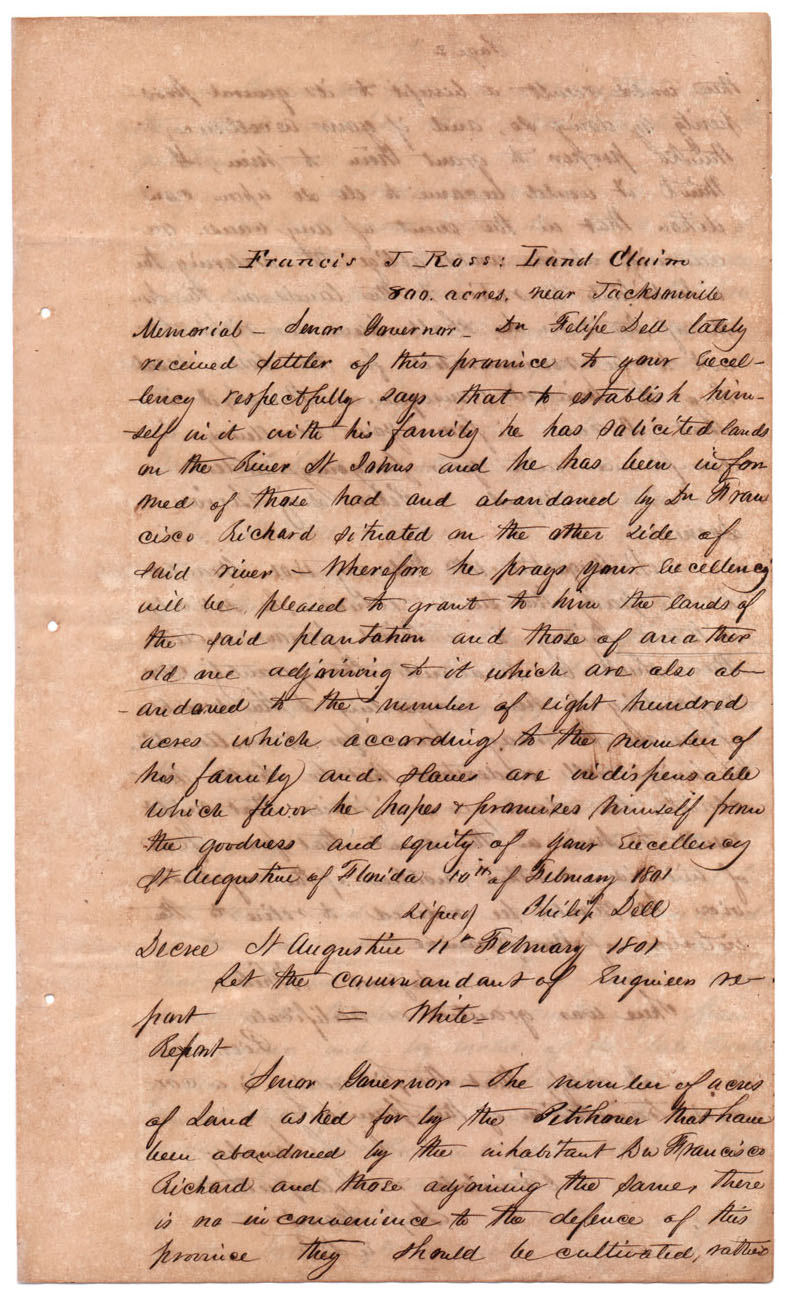 Francis J Ross: Land Claim
800. acres, near Jacksonville
Memorial – Senor Governor – Dn Felipe Dell lately
received settler of this province to your Excel-
lency respectfully says that to establish him-
self in it with his family he has solicited lands
on the River St Johns and he has been infor
med of those had and abandoned by Dn Fran
cisco Richard situated on the other side of
said river – Wherefore he prays your Excellency
will be pleased to grant to him the lands of
the said plantation and those of another
old one adjoining to it which are also ab-
andoned to the number of eight hundred
acres which according to the number of
his family and slaves are indispensable
which favor he hopes & promises himself from
the goodness and equity of your Excellency
St Augustine of Florida 10th of February 1801
signed Philip Dell
Decree St Augustine 11th February 1801
Let the commandant of Engineers re-
port = White =
Report
Senor Governor – The number of acres
of Land asked for by the Petitioner that have
been abandoned by the inhabitant Dn Francisco
Richard and those adjoining the same, there
is no inconvenience to the defence of this
province they should be cultivated, rather